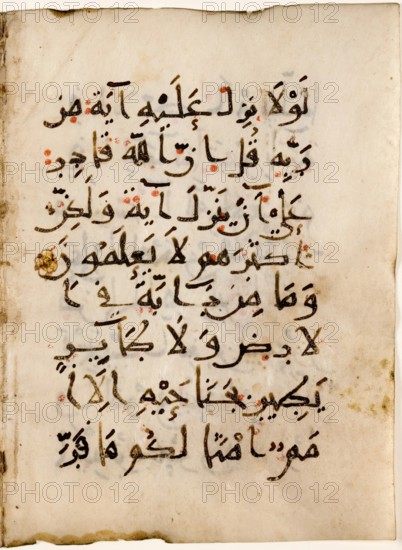 لَوْلَا نُزِّلَ عَلَيْهِ آيَةٌ مِن
رَبِّهِ قُل إِنَّ اللَّهَ قَادِر
عَلَى أَن يُنَزِّلَ آيَةً وَلَكِنَّ
أَكثَرَهُم لَا يَعْلَمُونَ
وَمَا مِن دَابَّةٍ فِي ا
لأَرضِ وَلَا طَايِرٍ
يَطِيرُ بِجَنَاحَيْهِ إِلَّا أُ
مَمٌ أَمْثَالُكُم مَا فَرَّ
PHOTO 12